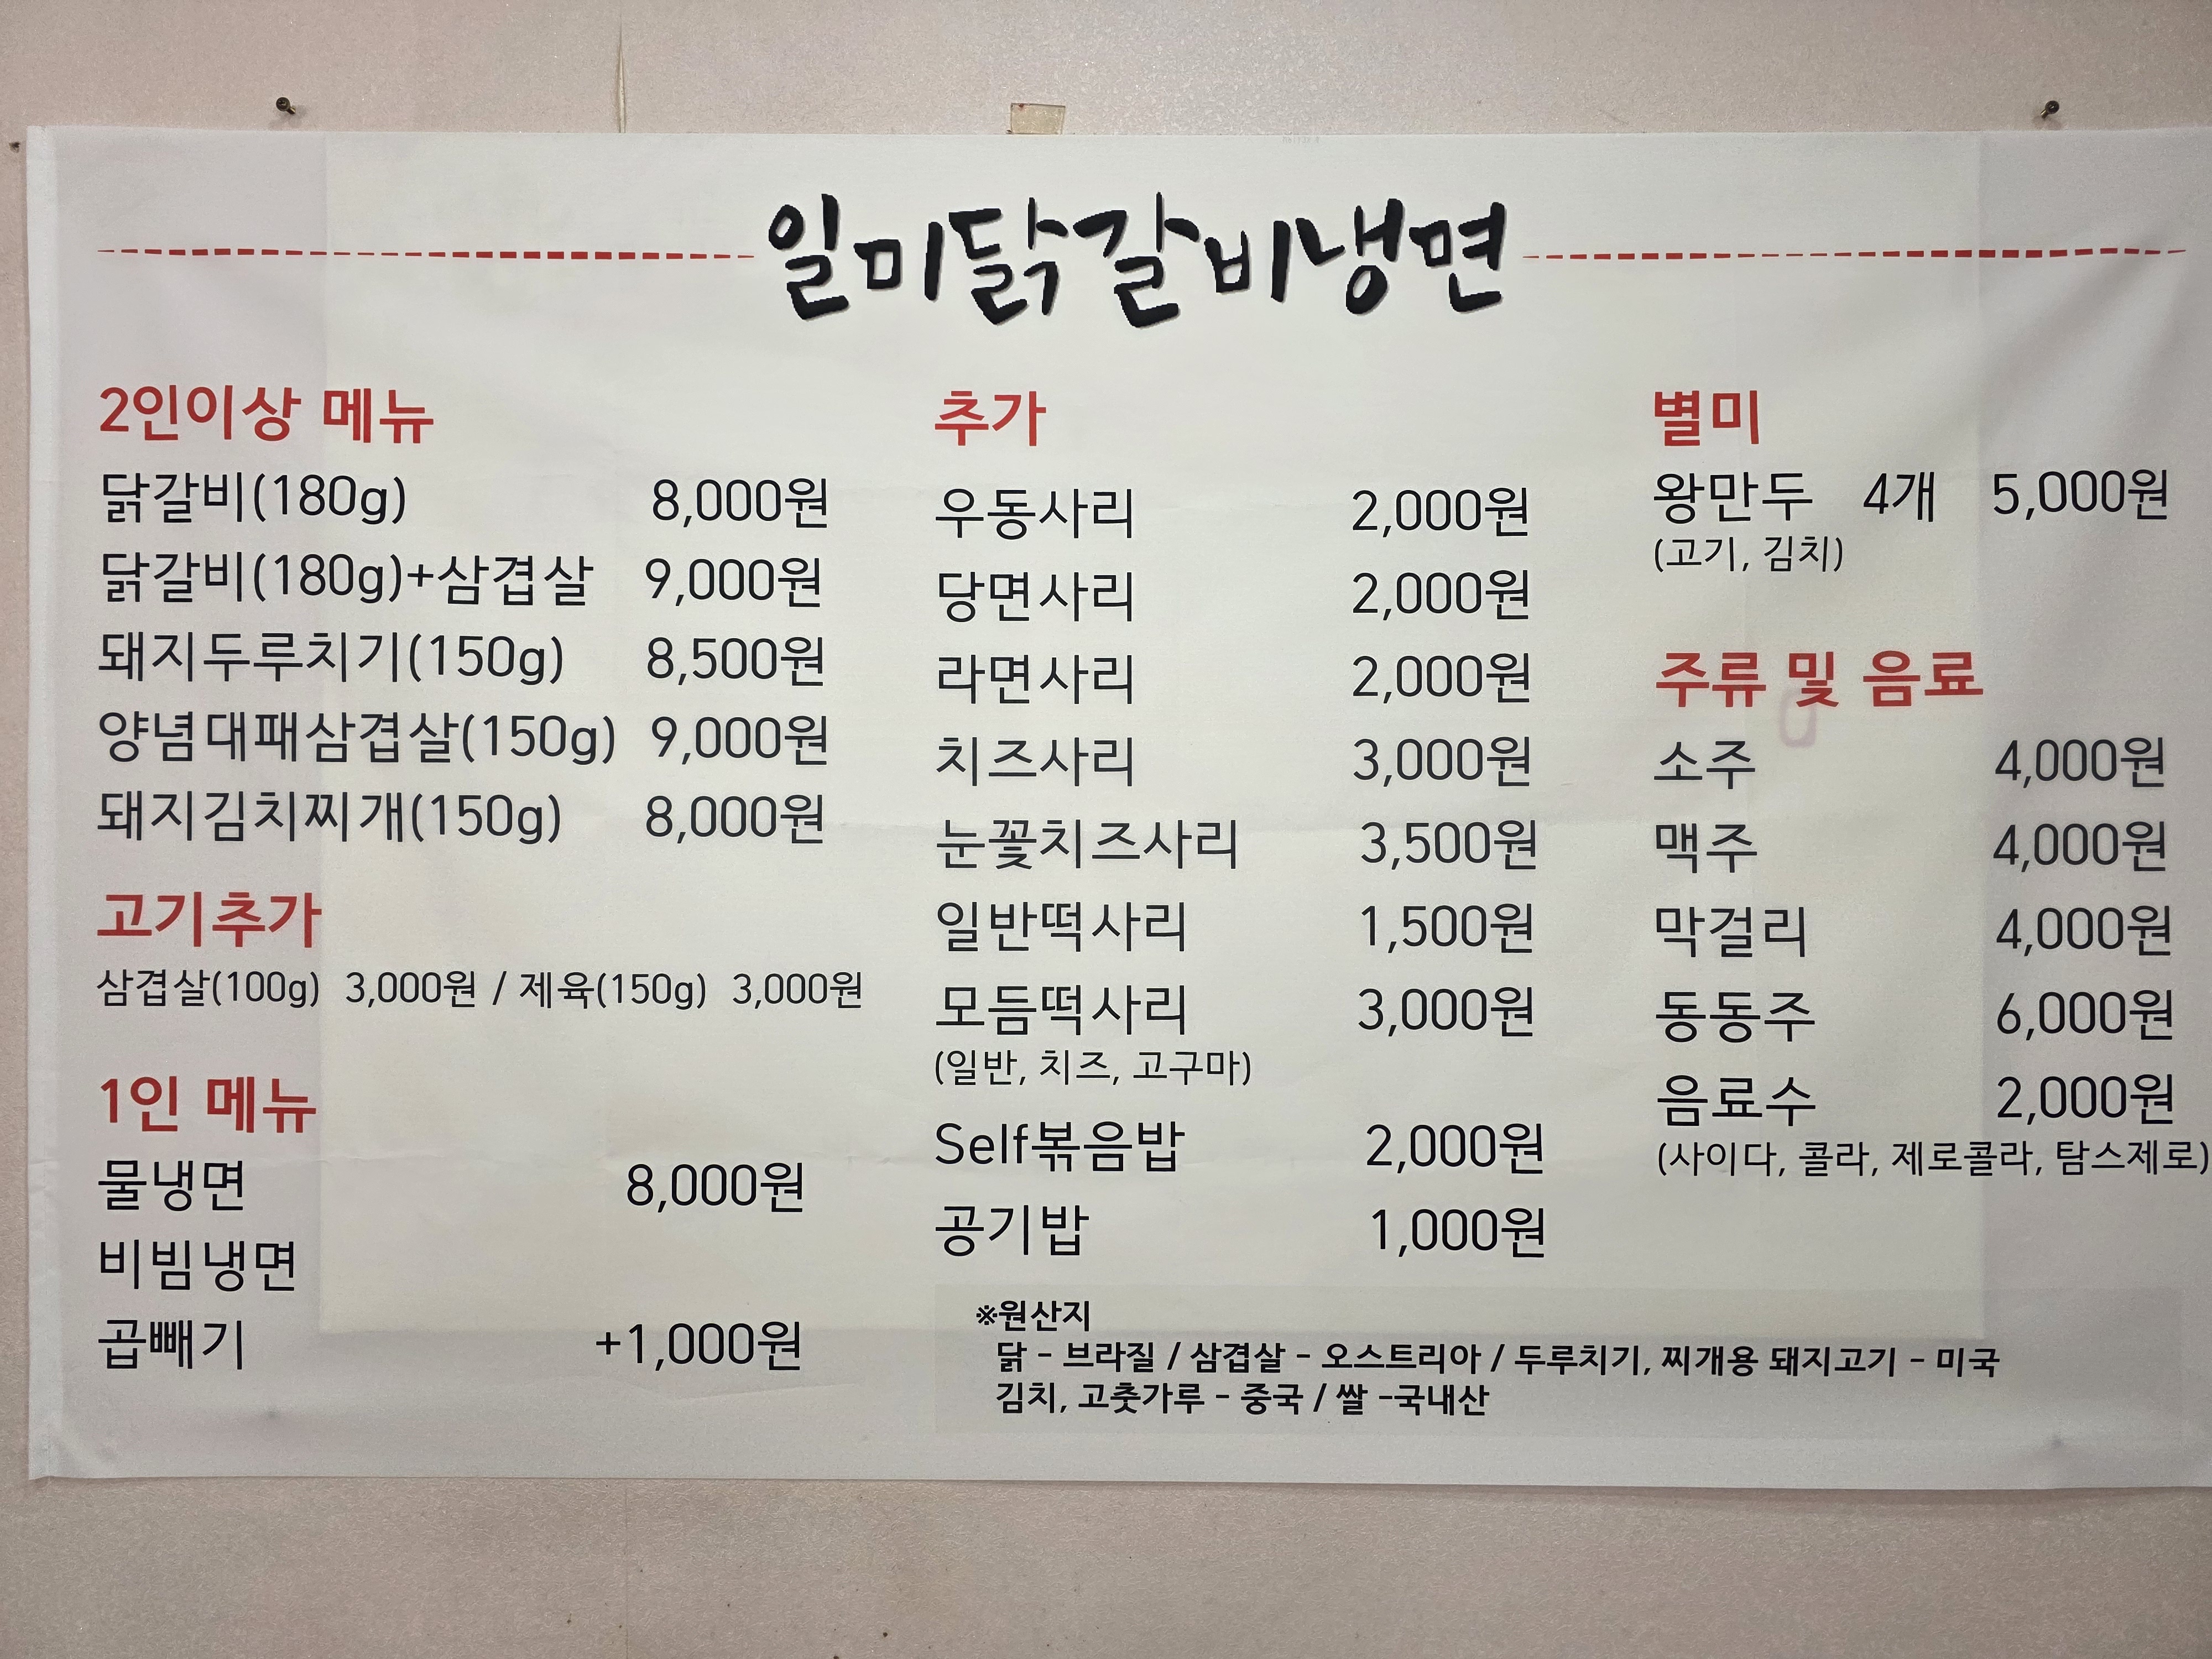 일미닭갈비냉면
2인이상 메뉴
닭갈비(180g) 8,000원
닭갈비(180g)+삼겹살 9,000원
돼지두루치기(150g) 8,500원
양념대패삼겹살(150g) 9,000원
돼지김치찌개(150g) 8,000원
고기추가
삼겹살(100g) 3,000원 / 제육(150g) 3,000원
1인 메뉴
물냉면 8,000원
비빔냉면
곱빼기 +1,000원
추가
우동사리 2,000원
당면사리 2,000원
라면사리 2,000원
치즈사리 3,000원
눈꽃치즈사리 3,500원
일반떡사리 1,500원
모듬떡사리 3,000원
(일반, 치즈, 고구마)
Self볶음밥 2,000원
공기밥 1,000원
별미
왕만두 4개 5,000원
(고기, 김치)
주류 및 음료
소주 4,000원
맥주 4,000원
막걸리 4,000원
동동주 6,000원
음료수 2,000원
(사이다, 콜라, 제로콜라, 탐스제로)
※원산지
닭 - 브라질 / 삼겹살 - 오스트리아 / 두루치기, 찌개용 돼지고기 - 미국
김치, 고춧가루 - 중국 / 쌀 -국내산